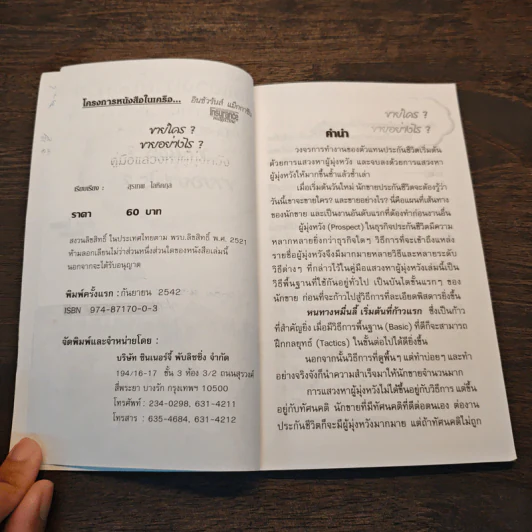 โครงการหนังสือในเครือ... อินชัวรันส์
Insurance
ขายใคร ?
ขายอย่างไร ?
เรียบเรียง :
ราคา 60 บาท
สงวนลิขสิทธิ์ ในประเทศไทยตาม พรบ.ลิขสิทธิ์ พ.ศ. 2521
ห้ามลอกเลียนไม่ว่าส่วนหนึ่งส่วนใดของหนังสือเล่มนี้
นอกจากจะได้รับอนุญาต
พิมพ์ครั้งแรก : กันยายน 2542
ISBN 974-87170-0-3
จัดพิมพ์และจำหน่ายโดย :
บริษัท ซินเนอร์จี้ พับลิชชิ่ง จำกัด
194/16-17 ชั้น 3 ห้อง 3/2 ถนนสุรวงศ์
สี่พระยา บางรัก กรุงเทพฯ 10500
โทรศัพท์ : 234-0298, 631-4211
โทรสาร : 635-4684, 631-4212
ขายใคร ?
ขายอย่างไร ?
คำนำ
วงจรการทำงานของตัวแทนประกันชีวิตเริ่มต้น
ด้วยการแสวงหาผู้มุ่งหวัง และจบลงด้วยการแสวงหา
ผู้มุ่งหวังให้มากขึ้นซ้ำแล้วซ้ำเล่า
เมื่อเริ่มต้นวันใหม่ นักขายประกันชีวิตจะต้องรู้ว่า
วันนี้เขาจะขายใคร? และขายอย่างไร? นี่คือแผนที่เส้นทาง
ของนักขาย และเป็นงานอันดับแรกที่ต้องทำก่อนงานอื่น
ผู้มุ่งหวัง (Prospect) ในธุรกิจประกันชีวิตมีความ
หลากหลายยิ่งกว่าธุรกิจใดๆ วิธีการที่จะเข้าถึงแหล่ง
รายชื่อผู้มุ่งหวังจึงมีมากมายหลายวิธีและหลายระดับ
วิธีต่างๆ ที่กล่าวไว้ในคู่มือแสวงหาผู้มุ่งหวังเล่มนี้เป็น
วิธีพื้นฐานที่ใช้กันอยู่ทั่วไป เป็นบันไดขั้นแรกๆ ของ
นักขาย ก่อนที่จะก้าวไปสู่วิธีการที่ละเอียดพิสดารยิ่งขึ้น
หนทางหมื่นลี้ เริ่มต้นที่ก้าวแรก ซึ่งเป็นก้าว
ที่สำคัญยิ่ง เมื่อมีวิธีการพื้นฐาน (Basic) ที่ดีก็จะสามารถ
ฝึกกลยุทธ์ (Tactics) ในขั้นต่อไปได้ดียิ่งขึ้น
นอกจากนั้นวิธีการที่ดูพื้นๆ แต่ทำบ่อยๆ และทำ
อย่างจริงจังก็นำความสำเร็จมาให้นักขายจำนวนมาก
การแสวงหาผู้มุ่งหวังไม่ได้ขึ้นอยู่กับวิธีการ แต่ขึ้น
อยู่กับทัศนคติ นักขายที่มีทัศนคติที่ดีต่อตนเอง ต่องาน
ประกันชีวิตก็จะมีผู้มุ่งหวังมากมาย แต่ถ้าทัศนคติไม่ถูก